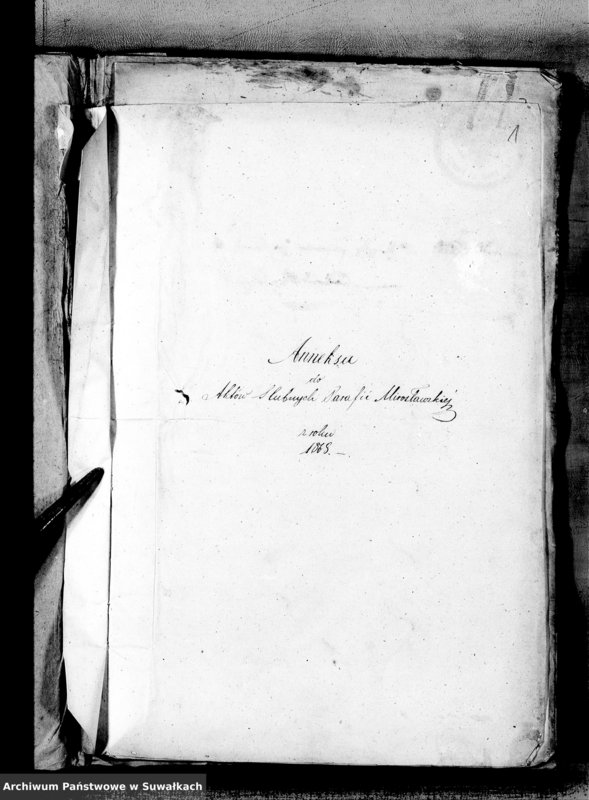 1
Anneksa
do
Aktów Slubnych Parafii Mirosławskiej
z roku
1868. –
Archiwum Państwowe w Suwałkach